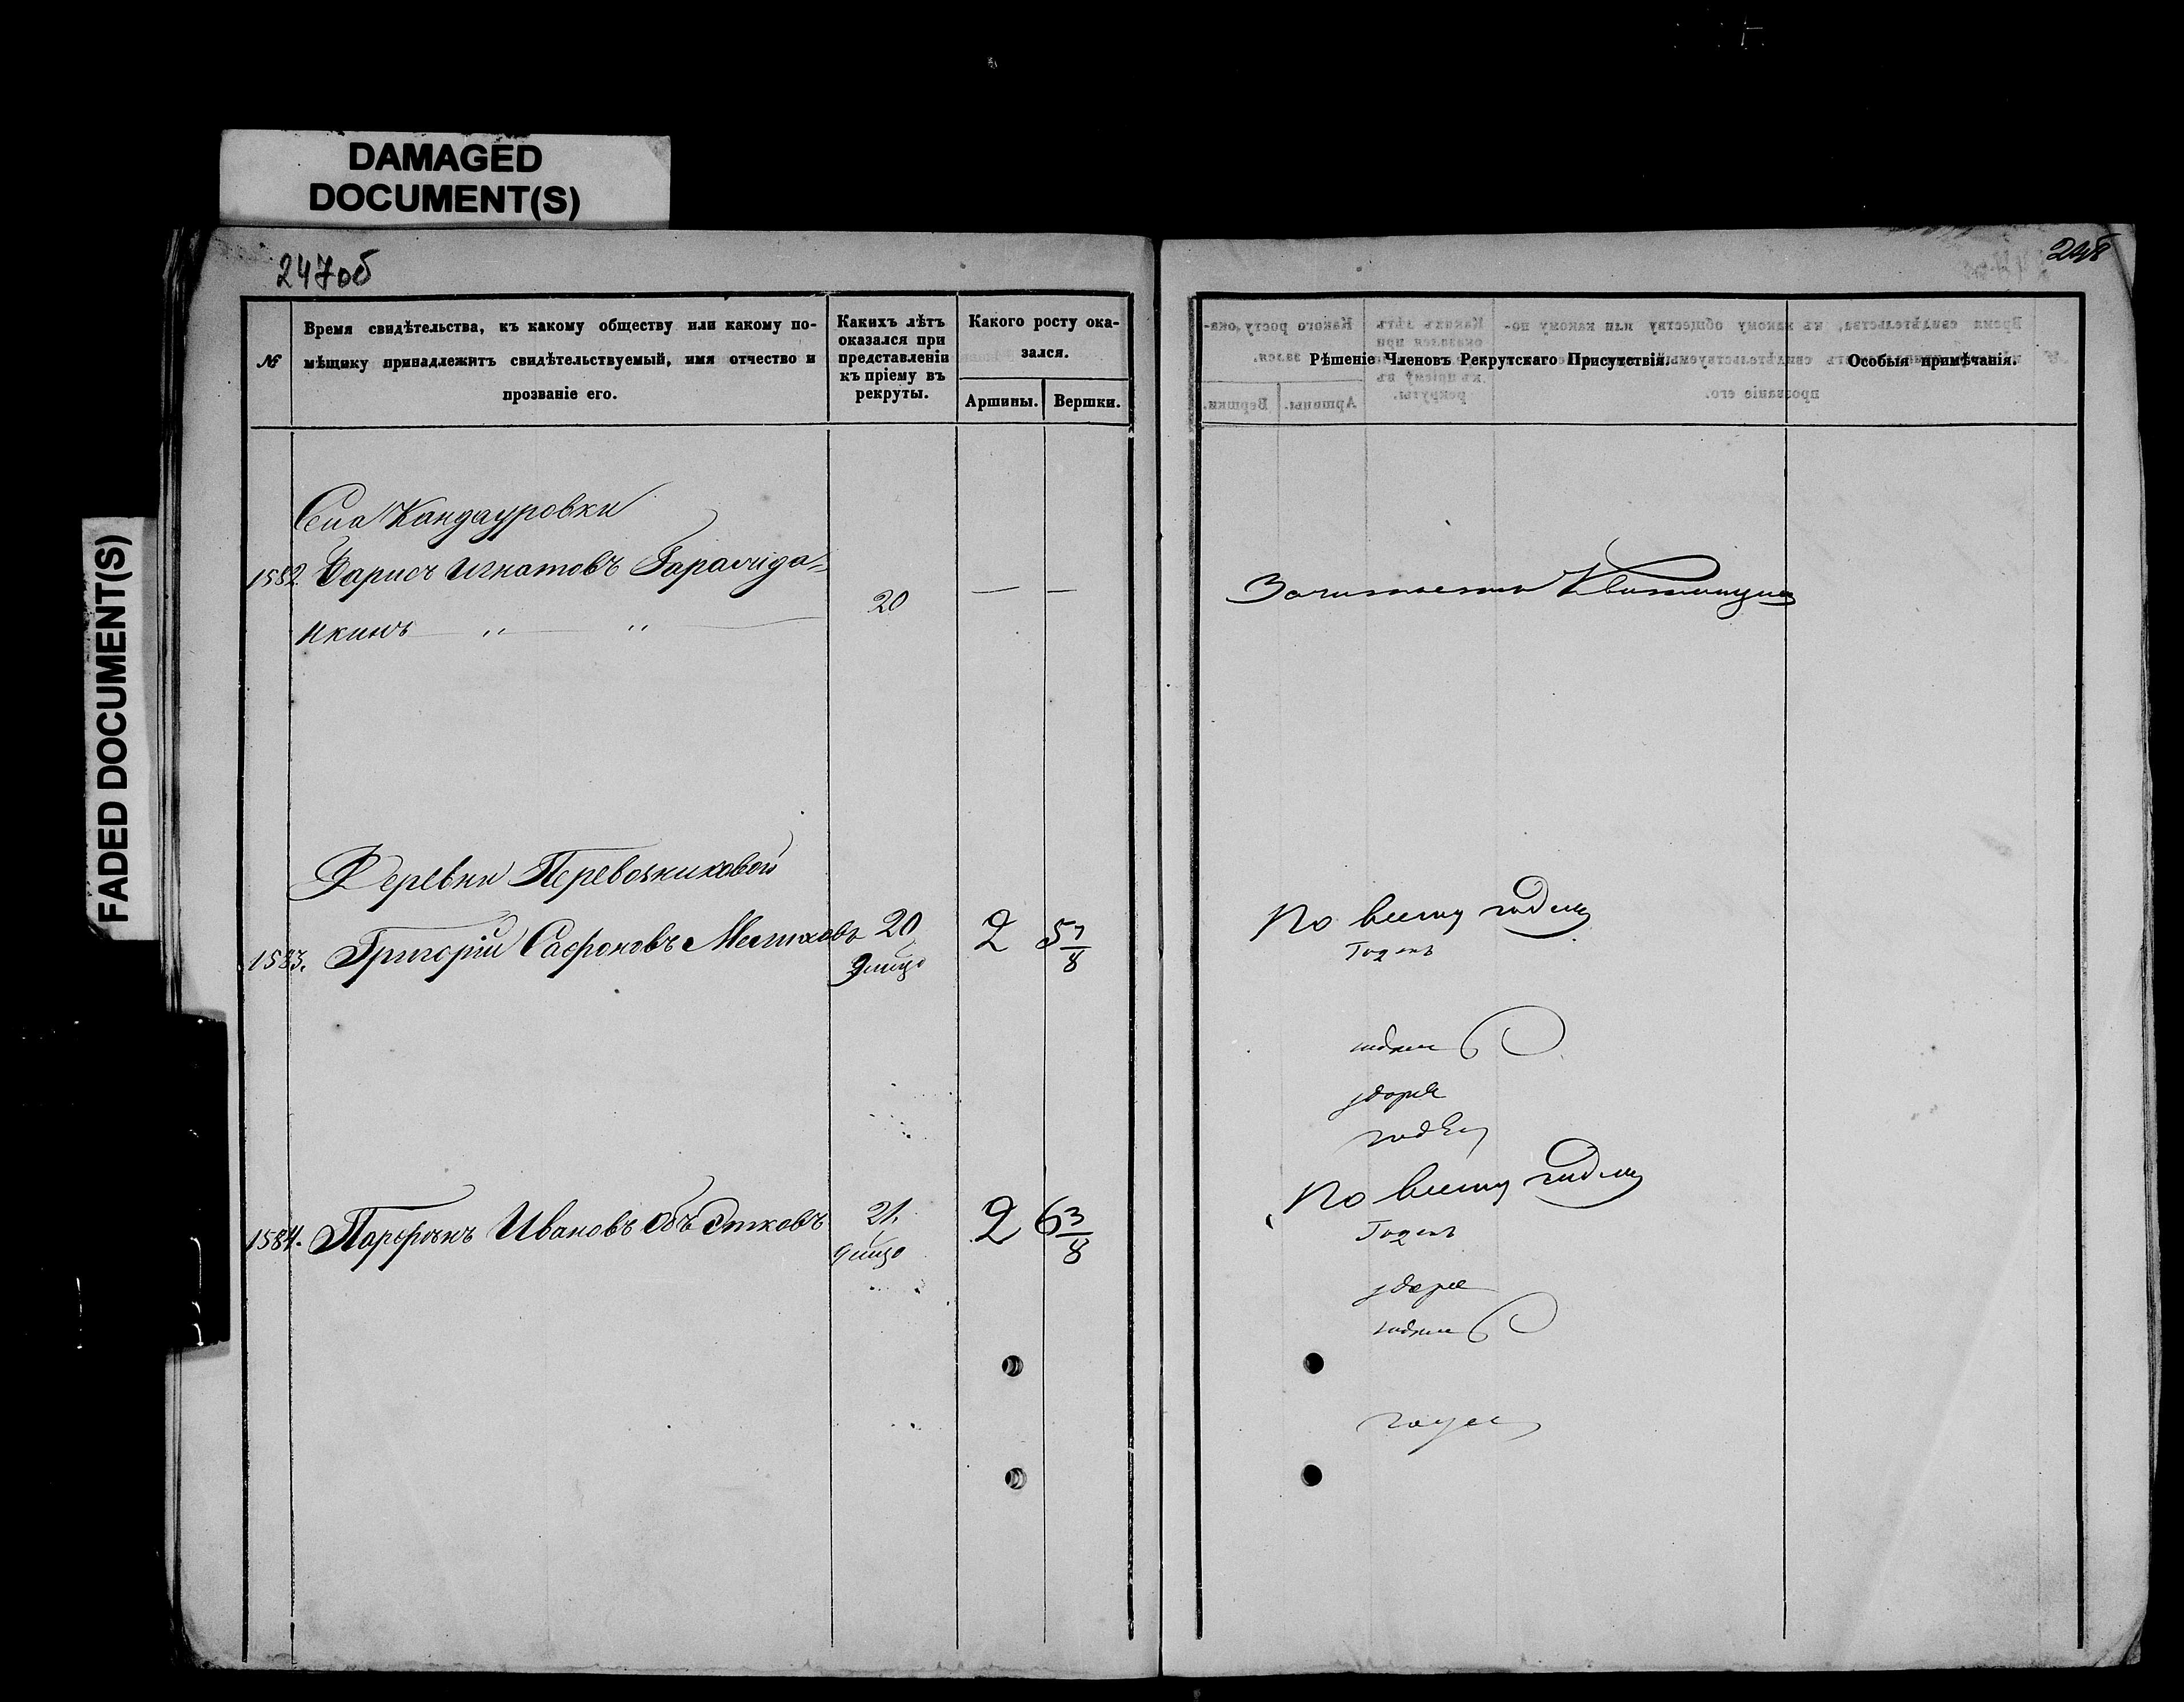 DAMAGED
DOCUMENT(S)
FADED DOCUMENT(S)
247об
№
Время свидѣтельства, къ какому обществу или какому по-
мѣщику принадлежитъ свидѣтельствуемый, имя отчество и
прозваніе его.
Какихъ лѣтъ
оказался при
представленіи
къ пріему въ
рекруты.
Какого росту ока-
зался.
Аршины.
Вершки.
Села Кандауровки
1582. Борисъ Игнатовъ
20 — —
Деревни Перевозниковой
1583. Григорій Сафоновъ 20 2 5 7/8
9
1584. Парфенъ Ивановъ Объѣдковъ 21. 2 6 3/8
9
248
Рѣшеніе Членовъ Рекрутскаго Присутствія.
Особыя примѣчанія.
Зачитается Квитанція
По всему годенъ
Годенъ
годенъ
здоровъ
годенъ
По всему годенъ
Годенъ
здоровъ
годенъ
годенъ